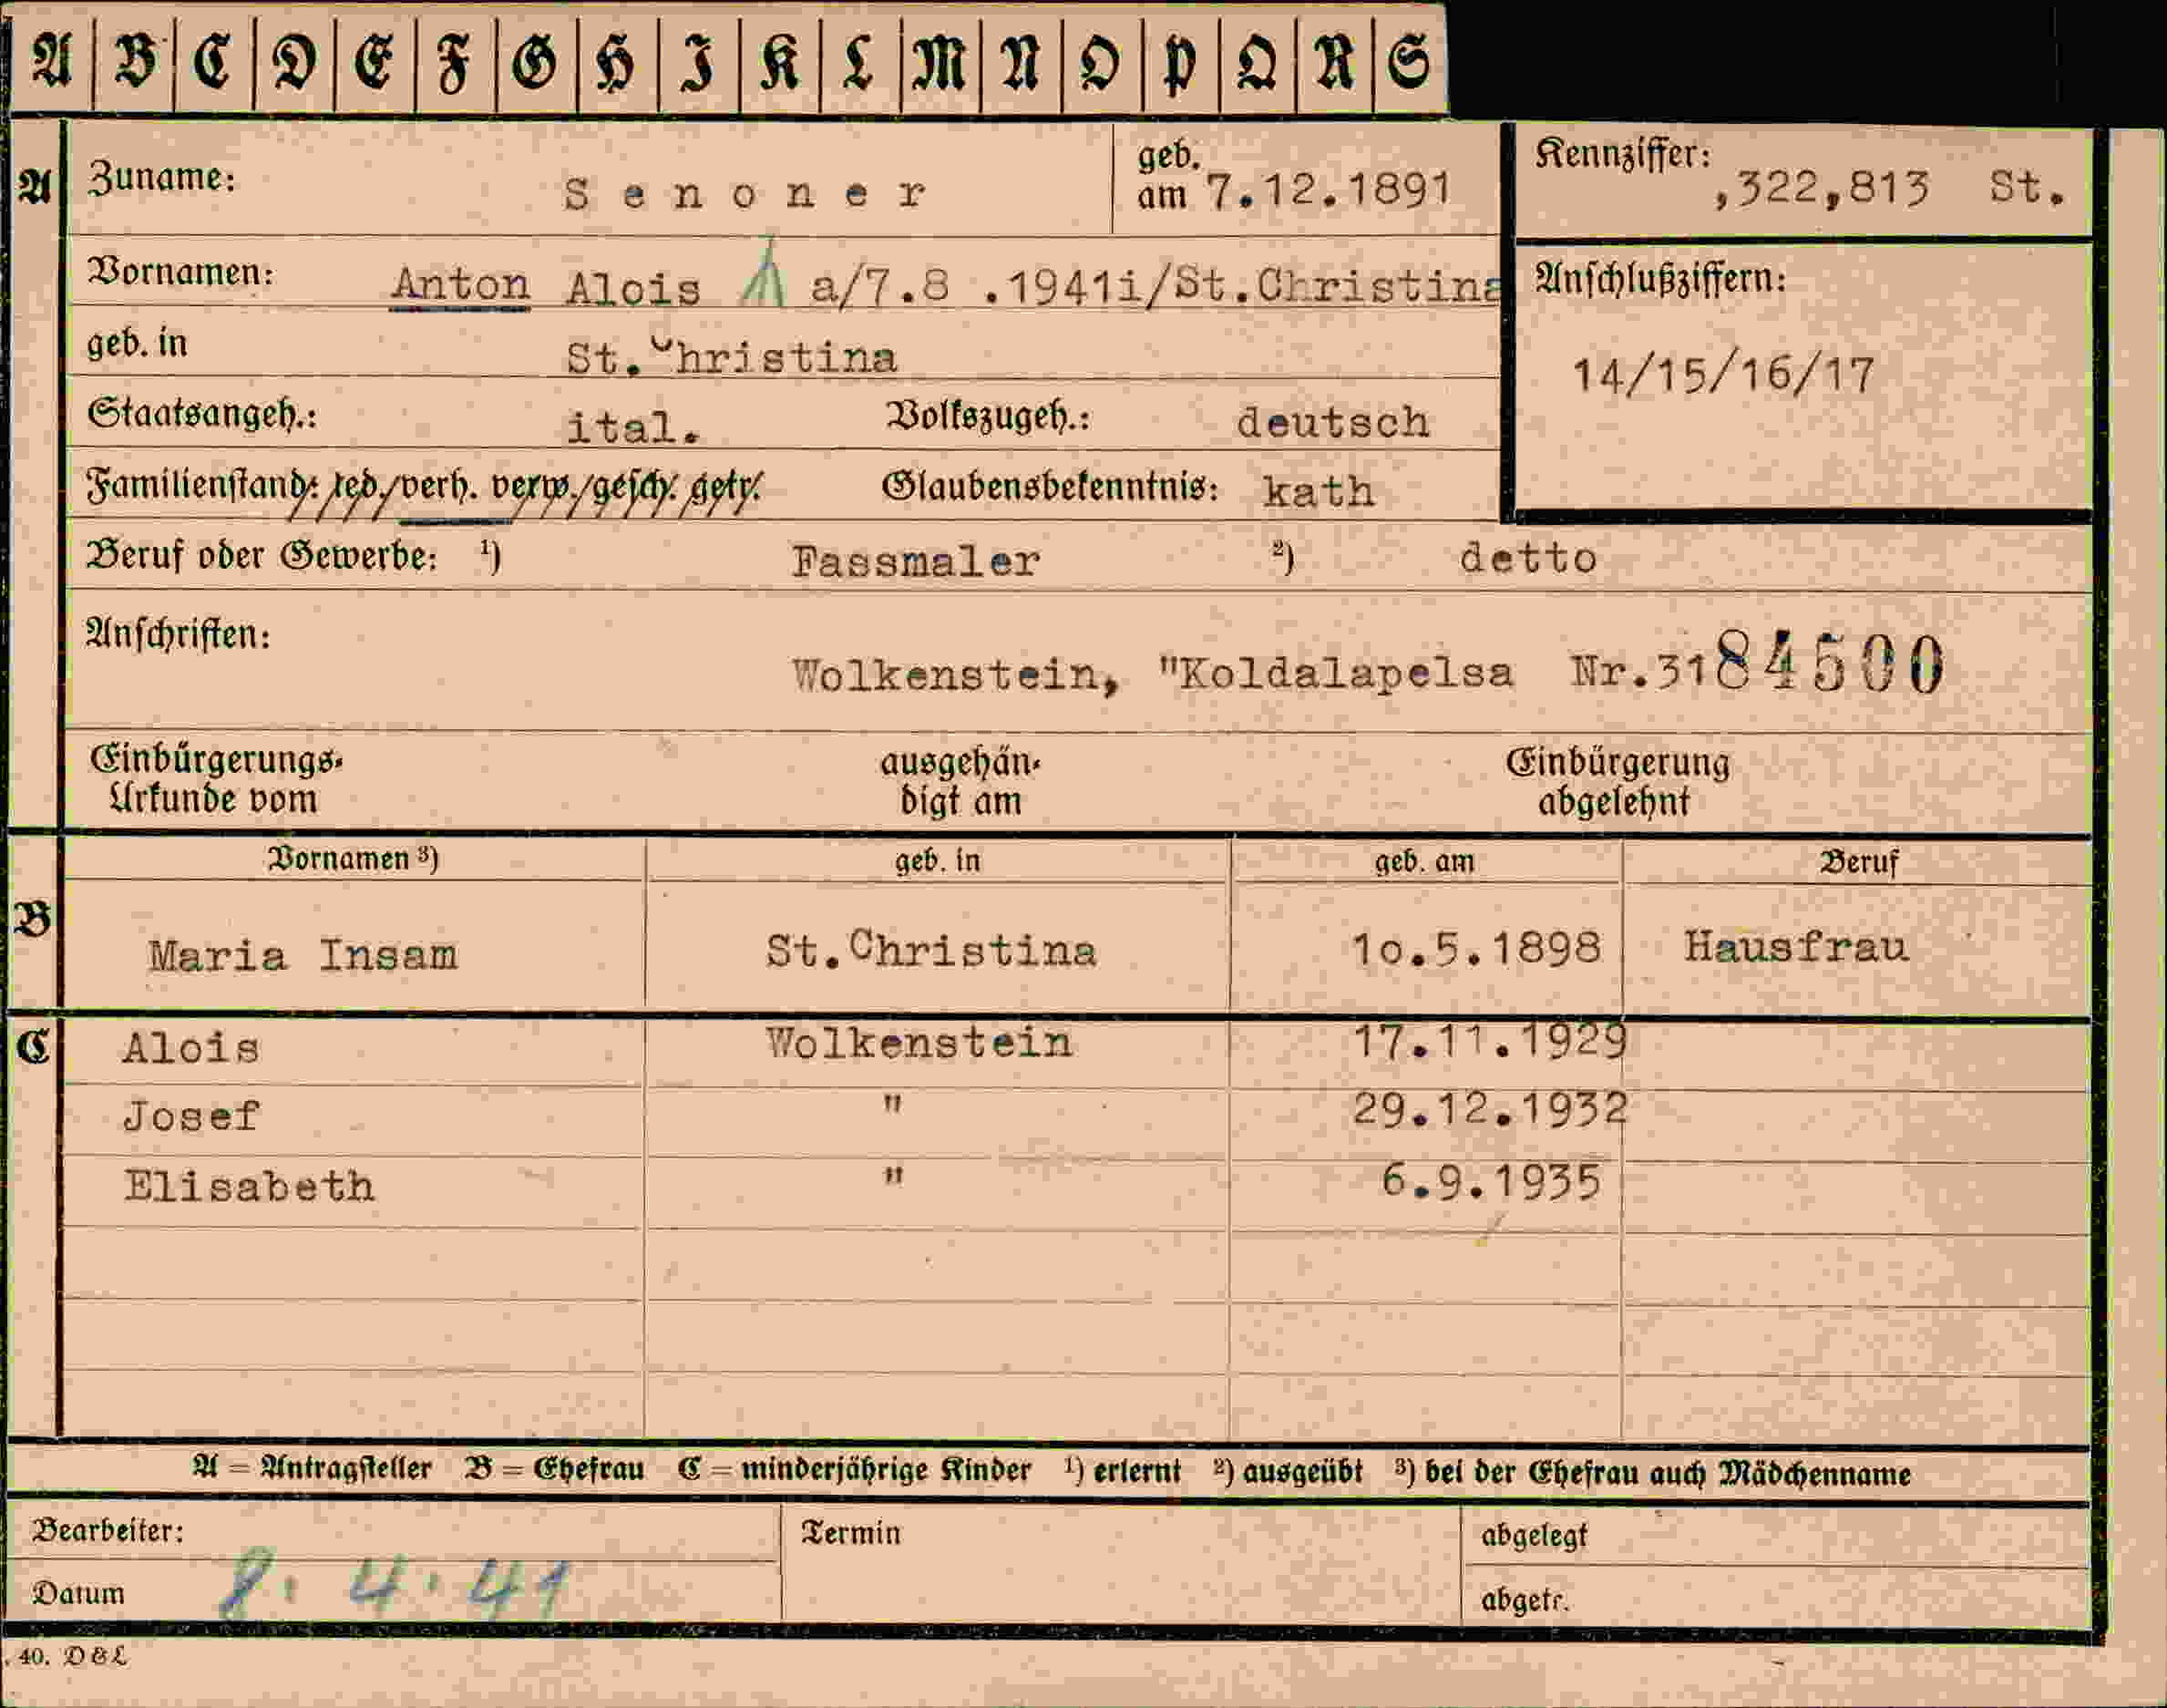 A B C D E F G H I K L M N O P Q R S
A Zuname: Senoner geb. am 7.12.1891 Kennziffer: ,322,813 St.
Vornamen: Anton Alois a/7.8 .1941i/St.Christina Anschlußziffern:
geb. in St.Christina 14/15/16/17
Staatsangeh.: ital. Volkszugeh.: deutsch
Familienstand: led./verh. verw./gesch. getr. Glaubensbekenntnis: kath
Beruf oder Gewerbe: ¹) Fassmaler ²) detto
Anschriften:
Wolkenstein, "Koldalapelsa Nr.31 84500
Einbürgerungs- ausgehän- Einbürgerung
Urkunde vom digt am abgelehnt
Vornamen ³) geb. in geb. am Beruf
B Maria Insam St.Christina 1o.5.1898 Hausfrau
C Alois Wolkenstein 17.11.1929
Josef " 29.12.1932
Elisabeth " 6.9.1935
A = Antragsteller B = Ehefrau C = minderjährige Kinder ¹) erlernt ²) ausgeübt ³) bei der Ehefrau auch Mädchenname
Bearbeiter: Termin abgelegt
Datum 8. 4. 41 abgetr.
. 40. D & L